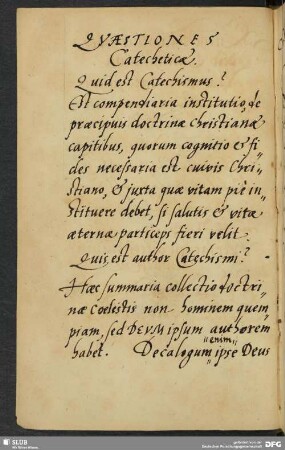 QVÆSTIONES
Catecheticæ.
Quid est Catechismus?
Est compendiaria institutio, de
præcipuis doctrinæ christianæ
capitibus, quorum cognitio & fi„
des necessaria est cuivis Chri„
stiano, & juxta quæ vitam piè in„
stituere debet, si salutis & vitæ
æternæ particeps fieri velit.
Quis est author Catechismi?
Hæc summaria collectio doctri„
næ coelestis non hominem quem„
piam, sed DEVM ipsum authorem
habet. Decalogum„enim„ipse Deus
SLUB
Wir führen Wissen.
gefördert von der
Deutschen Forschungsgemeinschaft
DFG